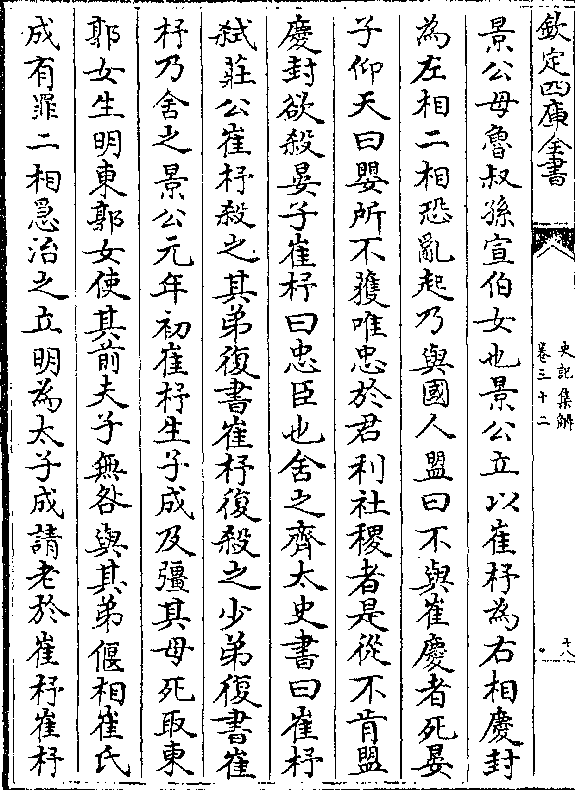 欽定四庫全書
史記集解
卷三十二
十八
景公母魯叔孫宣伯女也景公立以崔杼為右相慶封
為左相二相恐亂起乃與國人盟曰不與崔慶者死晏
子仰天曰嬰所不獲唯忠於君利社稷者是從不肯盟
慶封欲殺晏子崔杼曰忠臣也舍之齊太史書曰崔杼
弑莊公崔杼殺之其弟復書崔杼復殺之少弟復書崔
杼乃舍之景公元年初崔杼生子成及彊其母死取東
郭女生明東郭女使其前夫子無咎與其弟偃相崔氏
成有罪二相急治之立明為太子成請老於崔杼崔杼